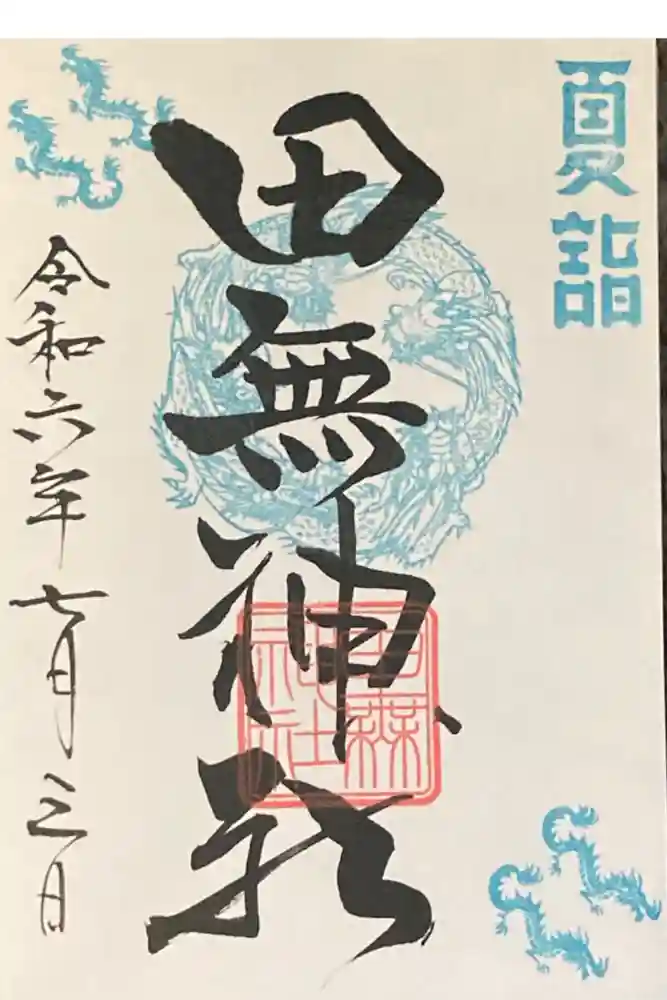 夏詣
田無神社
田無神社
令和六年七月三日